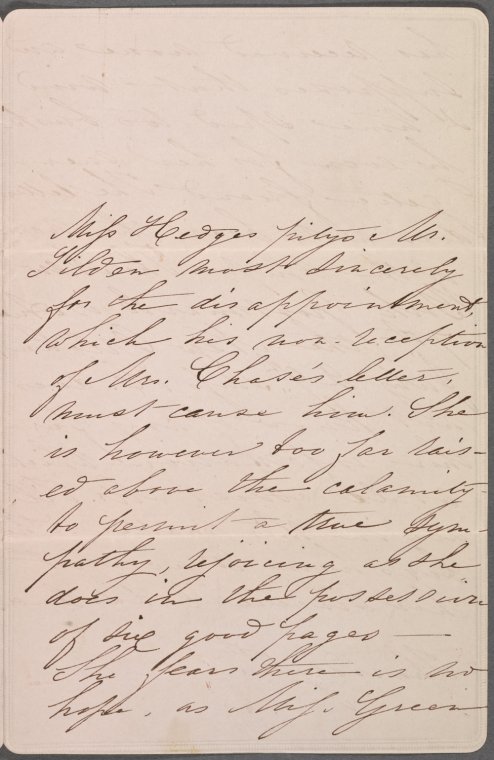 Miss Hedges pitys Mr.
Tilden most sincerely
for the disappointment,
which his non-reception
of Mrs. Chase's letter,
must cause him. She
is however too far rais-
ed above the calamity
to permit a true sym-
pathy, rejoicing as she
does in the possession
of six good pages —
She fears there is no
hope, as Miss. Green